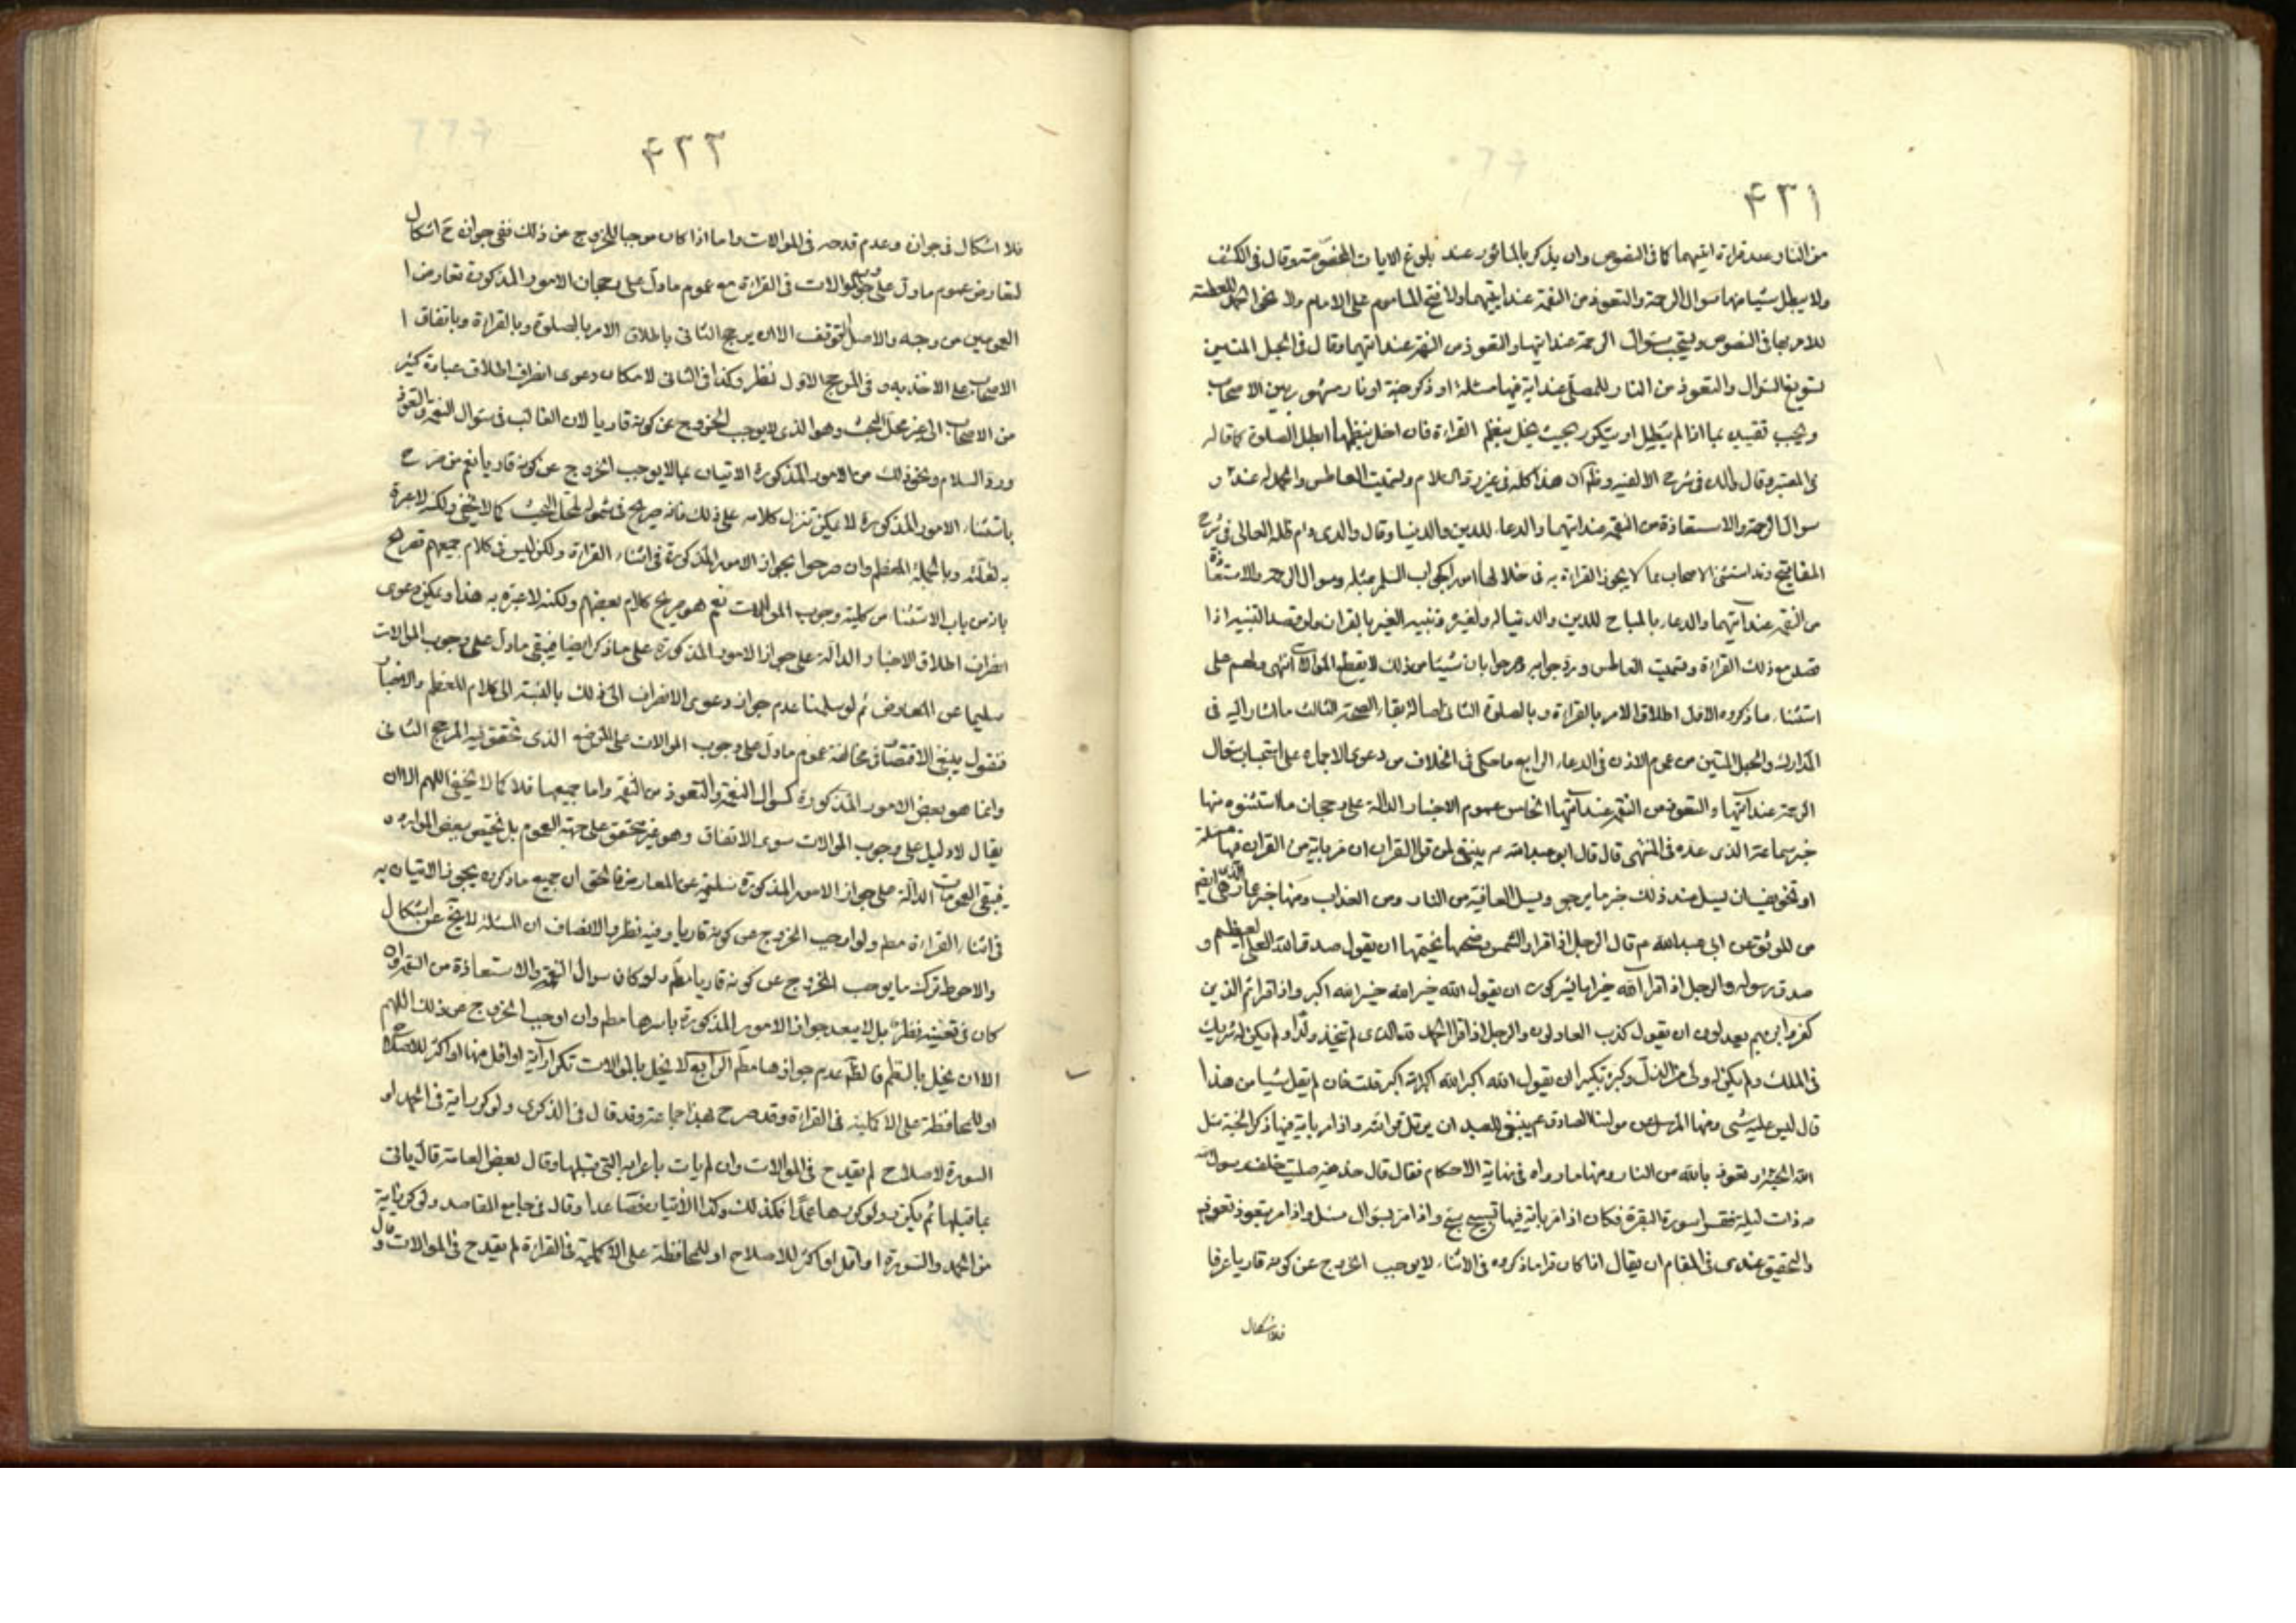 ۴۳۱
من النار عند قراءة ايتيهما كما في النصوص وان يذكر بالماثور عند بلوغ الايات المخصوصة وقال في الكشف
ولا يبطل شيئا منها سؤال الرحمة والتعوذ من النقمة عند ايتيهما ولا فتح الماموم على الامام ولا نحو الحمد للعطسة
للامر بها في النصوص ويستحب سؤال الرحمة عند ايتها والتعوذ من النقمة عند ايتهما وقال في الحبل المتين
تسويغ السؤال والتعوذ من النار للمصلي عند اية فيها مسئلة او ذكر جنة او نار مشهور بين الاصحاب
ويجب تقييده بما اذا لم يطل او يتكرر بحيث يخل بنظم القراءة فان اخل بنظمها ابطل الصلوة كما قاله
في المعتبر وقال والده في شرح الالفية وظ ان هذا كله في غير رد السلام وتسميت العاطس والحمد له عنده و
سؤال الرحمة والاستعاذة من النقمة عند ايتهما والدعاء للدين والدنيا وقال والدي دام ظله العالي في شرح
المفاتيح وقد استثنى الاصحاب مما لا يجوز القراءة به في خلالها امورا كجواب السلم بمثله وسؤال الرحمة والاستعاذة
من النقمة عند آيتهما والدعاء بالمباح للدين والدنيا له ولغيره وتنبيه الغير بالقران ولو قصد التنبيه اذا
قصد مع ذلك القراءة وتسميت العاطس ورد جوابه وصرحوا بان شيئا من ذلك لا يقطع الموالات انتهى ولهم على
استثناء ما ذكروه الاول اطلاق الامر بالقراءة وبالصلوة الثاني اصالة بقاء الصحة الثالث ما اشار اليه في
المدارك والحبل المتين من عموم الاذن في الدعاء الرابع ما حكي في الخلاف من دعوى الاجماع على استحباب سؤال
الرحمة عند آيتها والتعوذ من النقمة عند آيتها الخامس عموم الاخبار الدالة على رجحان ما استثنوه منها
خبر سماعة الذي عده في المنتهى قال قال ابو عبد الله ع ينبغي لمن قرا القران ان مر باية من القران فيها مسئلة
او تخويف ان يسئل عند ذلك خير ما يرجو ويسئل العافية من النار ومن العذاب ومنها خبر عمار
من الموثق عن ابي عبد الله ع قال الرجل اذا قرا والشمس وضحها فيختمها ان يقول صدق الله العلي العظيم و
صدق رسوله والرجل اذ اقرا آلله خير اما يشركون ان يقول الله خير الله خير الله اكبر واذا قرا ثم الذين
كفروا بربهم يعدلون ان يقول كذب العادلون والرجل اذا قرا الحمد لله الذي لم يتخذ ولدا ولم يكن له شريك
في الملك ولم يكن له ولي من الذل وكبره تكبيرا ان يقول الله اكبر الله اكبر الله اكبر قلت فان لم يقل شيئا من هذا
قال ليس عليه شئ ومنها المرسل عن مولينا الصادق ع ينبغي للعبد ان يرتل قرائته واذا مر باية فيها ذكر الجنة سئل
الله الجنة وتعوذ بالله من النار ومنها ما رواه في نهاية الاحكام فقال قال حذيفة صليت خلف رسول الله
ص ذات ليلة فقرا سورة البقرة فكان اذا مر باية فيها تسبيح سبح واذا مر بسؤال سئل واذا مر بتعوذ تعوذ
والتحقيق عندي في المقام ان يقال اذا كان قرا ما ذكروه في الاثناء لا يوجب الخروج عن كونه قاريا عرفا
فلا اشكال
۴۳۲
فلا اشكال في جوازه وعدم قدحه في الموالات واما اذا كان موجبا للخروج عن ذلك ففي جوازه ح اشكال
لتعارض عموم ما دل على وجوب الموالات في القراءة مع عموم ما دل على رجحان الامور المذكورة تعارض ا
العمومين من وجه والاصل التوقف الا ان يرجح الثاني باطلاق الامر بالصلوة وبالقراءة وباتفاق ا
الاصحاب على الاخذ به وفي المرجح الاول نظر وكذا في الثاني لامكان دعوى انصراف اطلاق عبارة كثير
من الاصحاب الى غير محل البحث وهو الذي لا يوجب الخروج عن كونه قاريا لان الغالب في سؤال النعمة والتعوذ
ورد السلام ونحو ذلك من الامور المذكورة الاتيان بما لا يوجب الخروج عن كونه قاريا نعم من صرح
باستثناء الامور المذكورة لا يمكن تنزيل كلامه على ذلك فانه صريح في شموله لمحل البحث كما لا يخفى ولكنه لا عبرة
به لقلته وبالجملة المعظم وان صرحوا بجواز الامور المذكورة في اثناء القراءة ولكن ليس في كلام جميعهم تصريح
بانه من باب الاستثناء من كلية وجوب الموالات نعم هو صريح كلام بعضهم ولكنه لا عبرة به هذا ويمكن دعوى
انصراف اطلاق الاخبار الدالة على جواز الامور المذكورة على ما ذكر ايضا فيبقى ما دل على وجوب الموالات
سليما عن المعارض ثم لو سلمنا عدم جواز دعوى الانصراف الى ذلك بالنسبة الى كلام المعظم والاخبار
فنقول ينبغي الاقتصار في مخالفة عموم ما دل على وجوب الموالات على الموضع الذي تحقق فيه المرجح الثاني
وانما هو بعض الامور المذكورة كسؤال النعمة والتعوذ من النقمة واما جميعها فلا كما لا يخفى اللهم الا ان
يقال لا دليل على وجوب الموالات سوى الاتفاق وهو غير متحقق على جهة العموم بل يختص ببعض الموارد
فيبقى العمومات الدالة على جواز الامور المذكورة سليمة عن المعارض فالحق ان جميع ما ذكروه يجوز الاتيان به
في اثناء القراءة مطم ولو اوجب الخروج عن كونه قاريا وفيه نظر والانصاف ان المسئلة لا يخ عن اشكال
والاحوط ترك ما يوجب الخروج عن كونه قاريا مطم ولو كان سؤال النعمة والاستعاذة من النقمة وان
كان في تعينه نظر بل لا يبعد جواز الامور المذكورة باسرها مطم وان اوجب الخروج من ذلك اللهم
الا ان يخل بالنظم فالظ عدم جوازها مطم الرابع لا يخل بالموالات تكرار آية او اقل منها او اكثر للاصلاح
او للمحافظة على الاكملية في القراءة وقد صرح بهذا جماعة وقد قال في الذكرى ولو كرر اية في الحمد او
السورة لاصلاح لم يقدح في الموالات وان لم يات باعرابه التي قبلها وقال بعض العامة قال ياتي
بما قبلها ثم يكرر ولو كررها عمدا فكذلك وكذا الاتيان فصاعدا وقال في جامع المقاصد ولو كرر اية
من الحمد والسورة او اقل او اكثر للاصلاح او للمحافظة على الاكملية في القراءة لم يقدح في الموالات وقال